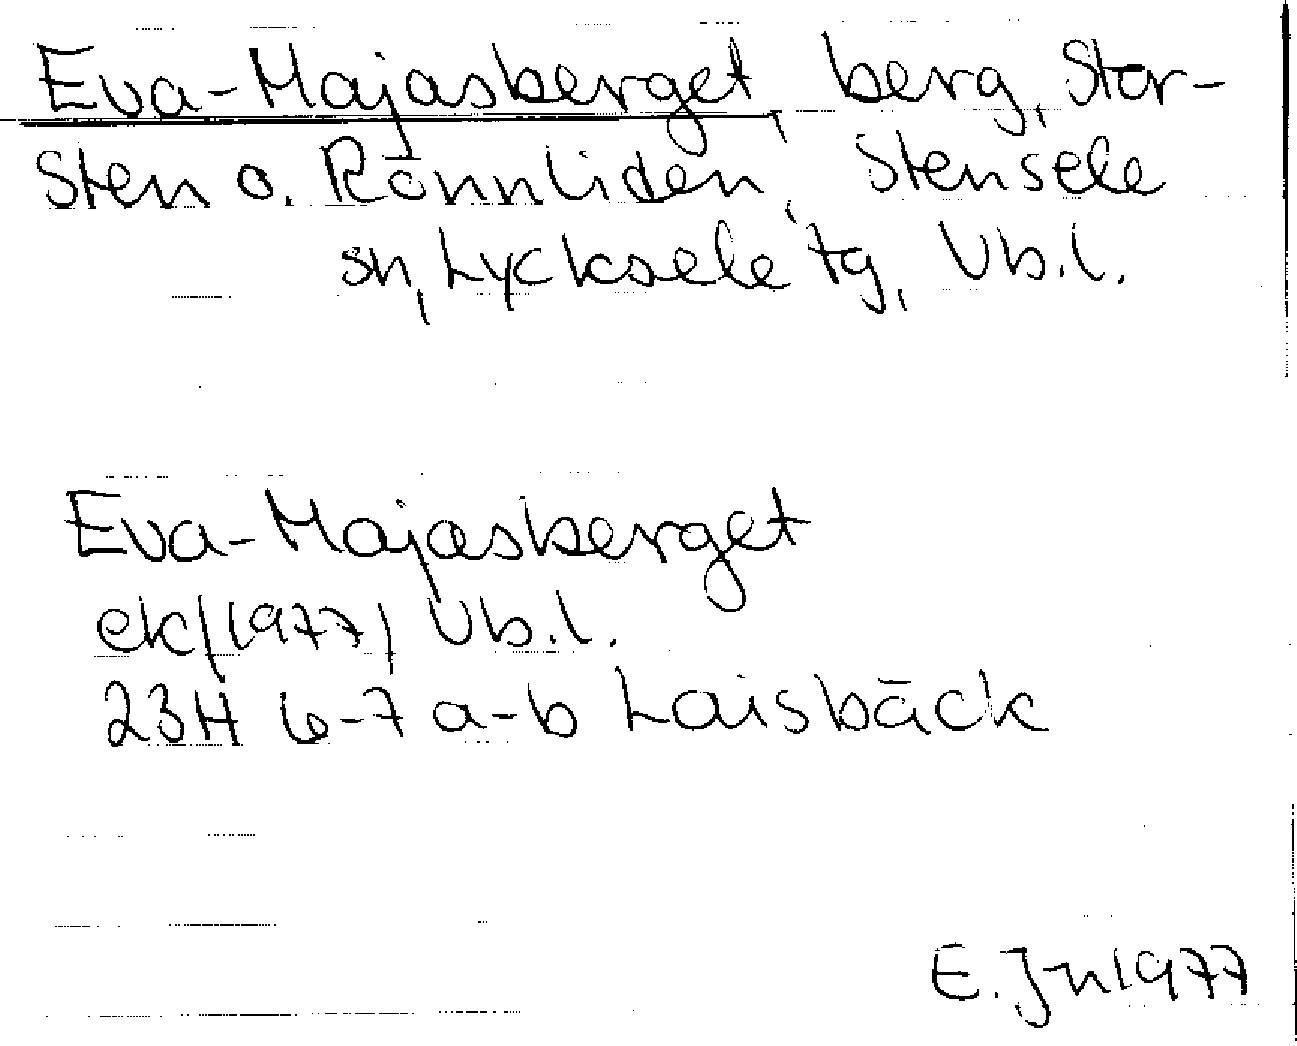 Eva-Majasberget, berg, Stor-
sten o. Rönnliden, Stensele
sn, Lycksele tg, Vb.l.
Eva-Majasberget
ek(1977) Vb.l.
23H 6-7 a-b Laisbäck
E. Jn 1977